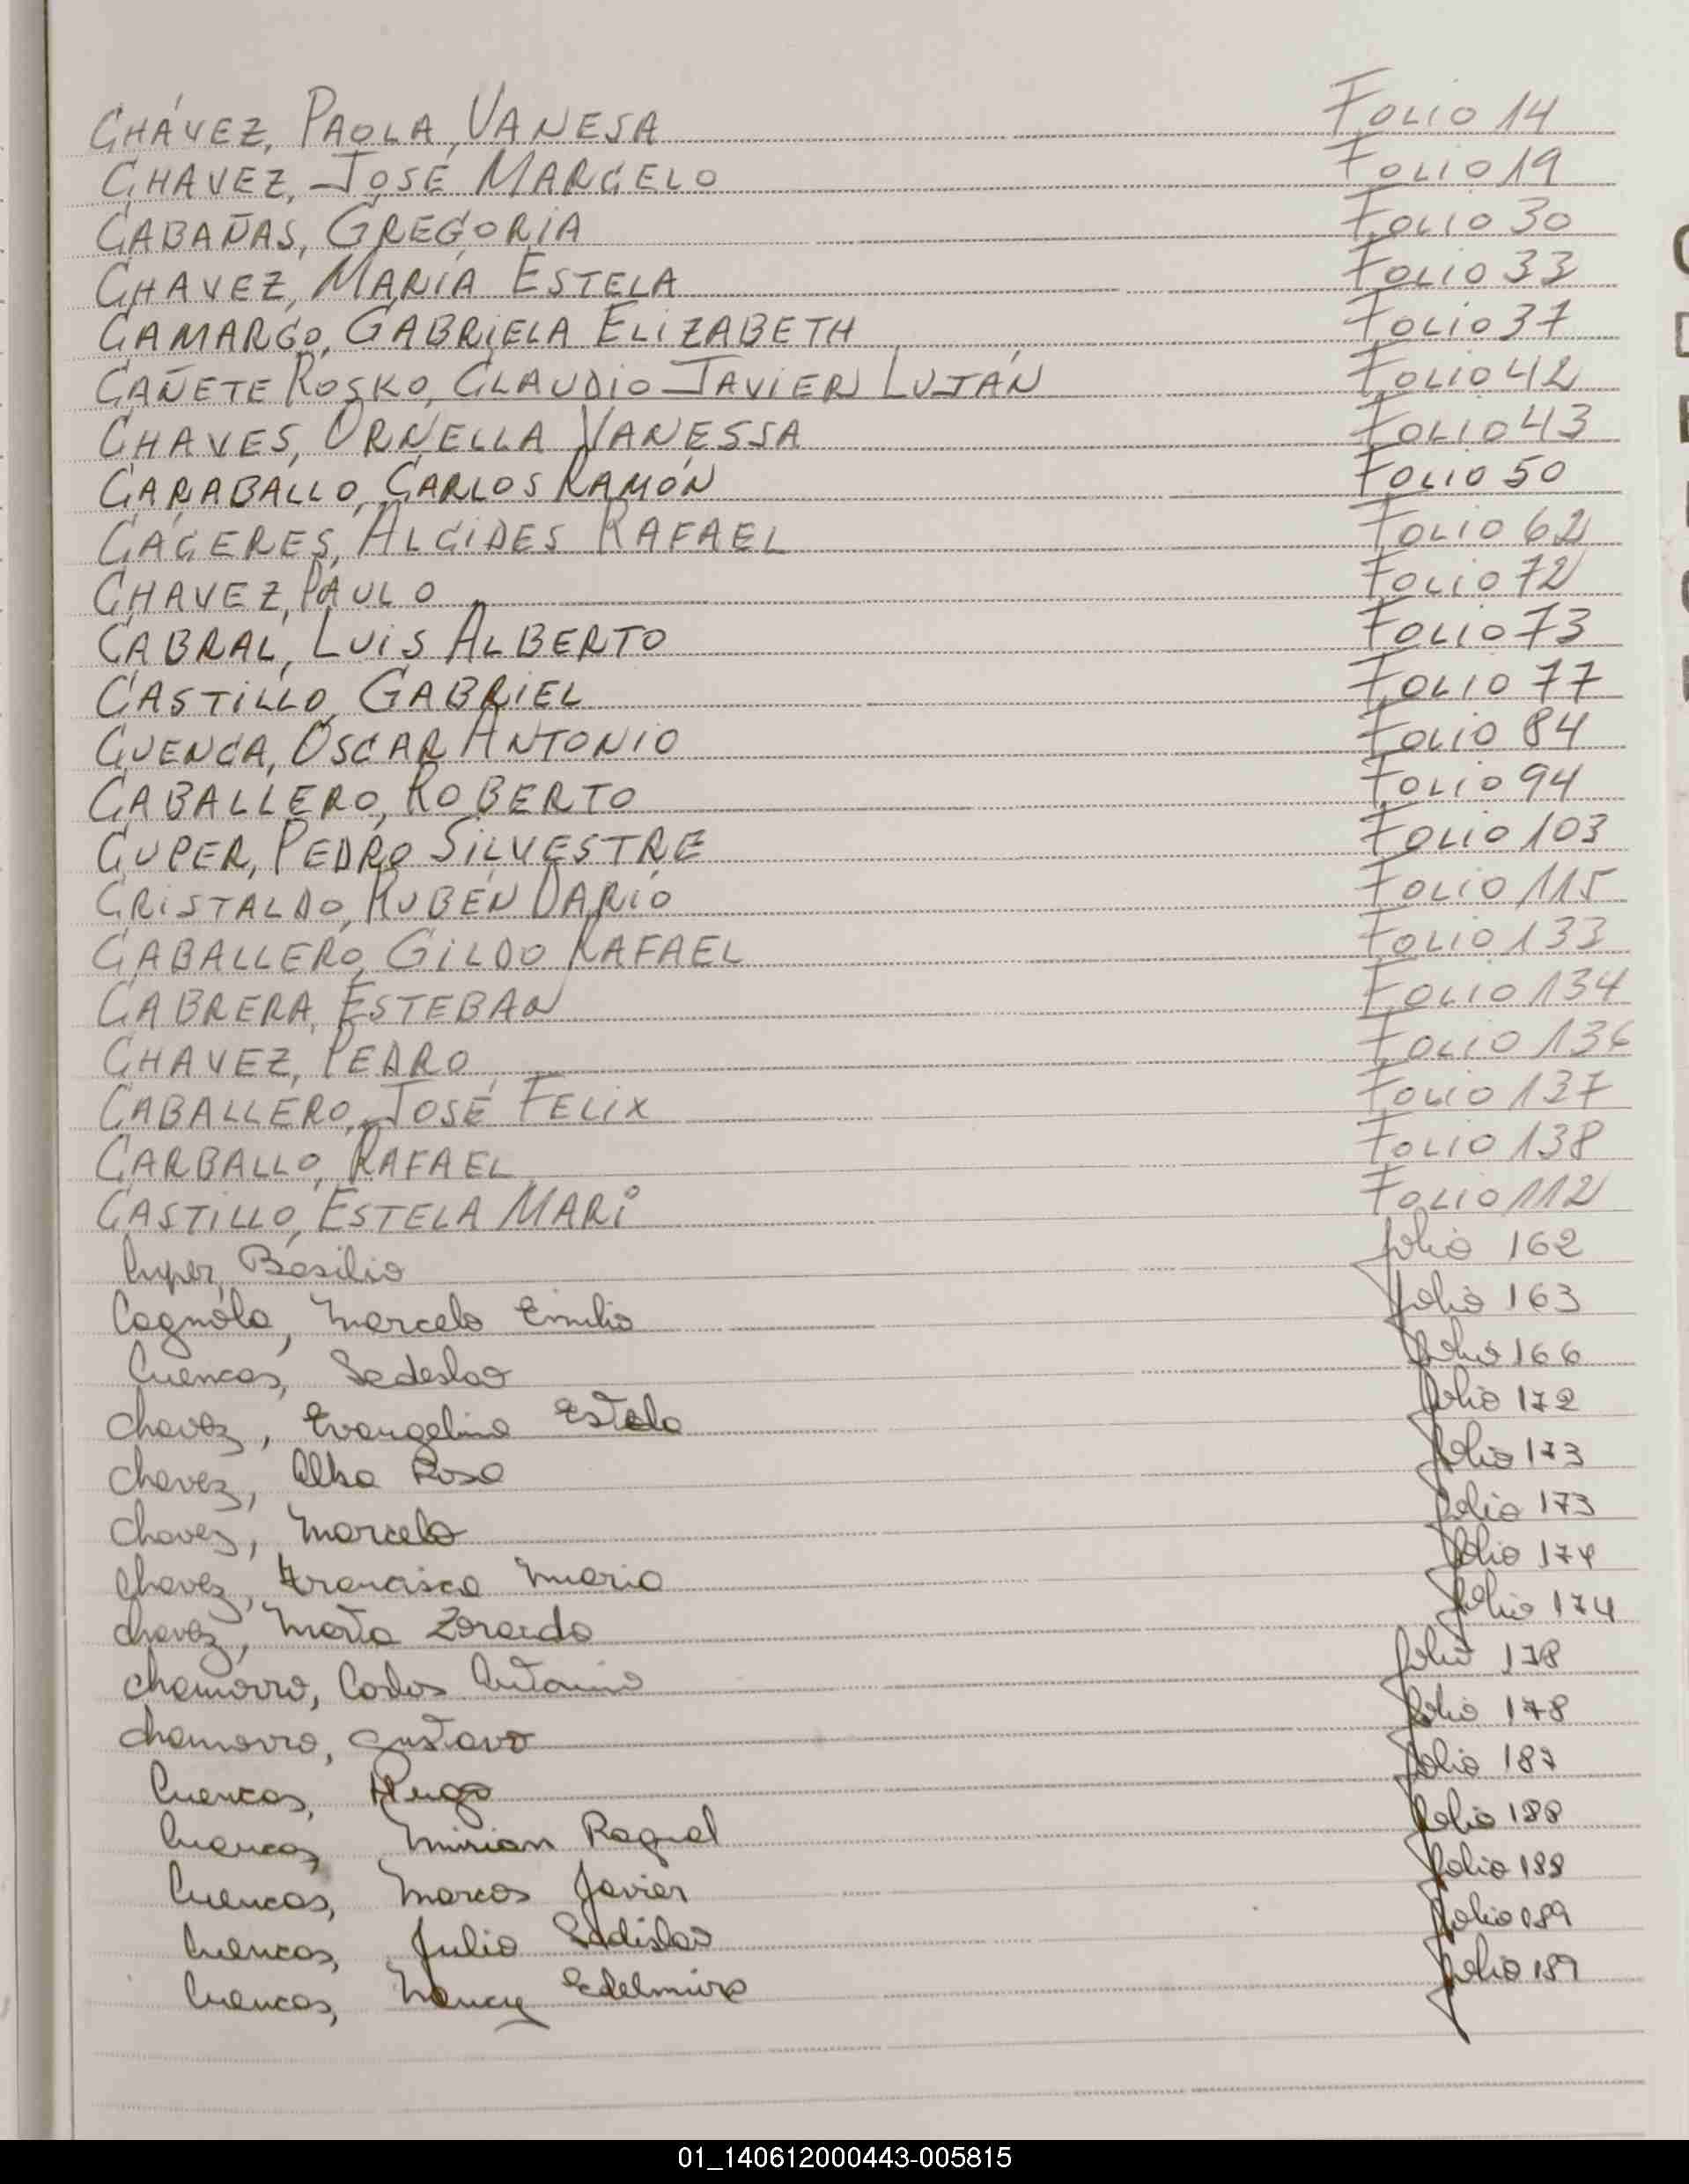 CHÁVEZ, PAOLA VANESA Folio 14
CHAVEZ, JOSÉ MARCELO Folio 19
CABAÑAS, GREGORIA Folio 30
CHAVEZ, MARÍA ESTELA Folio 33
CAMARGO, GABRIELA ELIZABETH Folio 37
CAÑETE ROSKO, CLAUDIO JAVIER LUJÁN Folio 42
CHAVES, ORNELLA VANESSA Folio 43
CARABALLO, CARLOS RAMÓN Folio 50
CÁCERES, ALCIDES RAFAEL Folio 62
CHAVEZ, PAULO Folio 72
CABRAL, LUIS ALBERTO Folio 73
CASTILLO, GABRIEL Folio 77
CUENCA, OSCAR ANTONIO Folio 84
CABALLERO, ROBERTO Folio 94
CUPER, PEDRO SILVESTRE Folio 103
CRISTALDO, RUBÉN DARÍO Folio 115
CABALLERO, GILDO RAFAEL Folio 133
CABRERA, ESTEBAN Folio 134
CHAVEZ, PEDRO Folio 136
CABALLERO, JOSÉ FELIX Folio 137
CARBALLO, RAFAEL Folio 138
CASTILLO, ESTELA MARI Folio 112
Cuper, Basilio folio 162
Cagnola, Marcelo Emilio folio 163
Cuencas, Ladeslao folio 166
Chavez, Evangelina Estela folio 172
Chavez, Alba Rosa folio 173
Chavez, Marcelo folio 173
Chavez, Francisca Maria folio 174
Chavez, Marta Zoraida folio 174
Chamorro, Carlos Antonio folio 178
Chamorro, Gustavo folio 178
Cuencas, Hugo folio 187
Cuencas, Mirian Raquel folio 188
Cuencas, Marcos Javier folio 188
Cuencas, Julio Ladislao folio 189
Cuencas, Nancy Edelmira folio 189
01_140612000443-005815